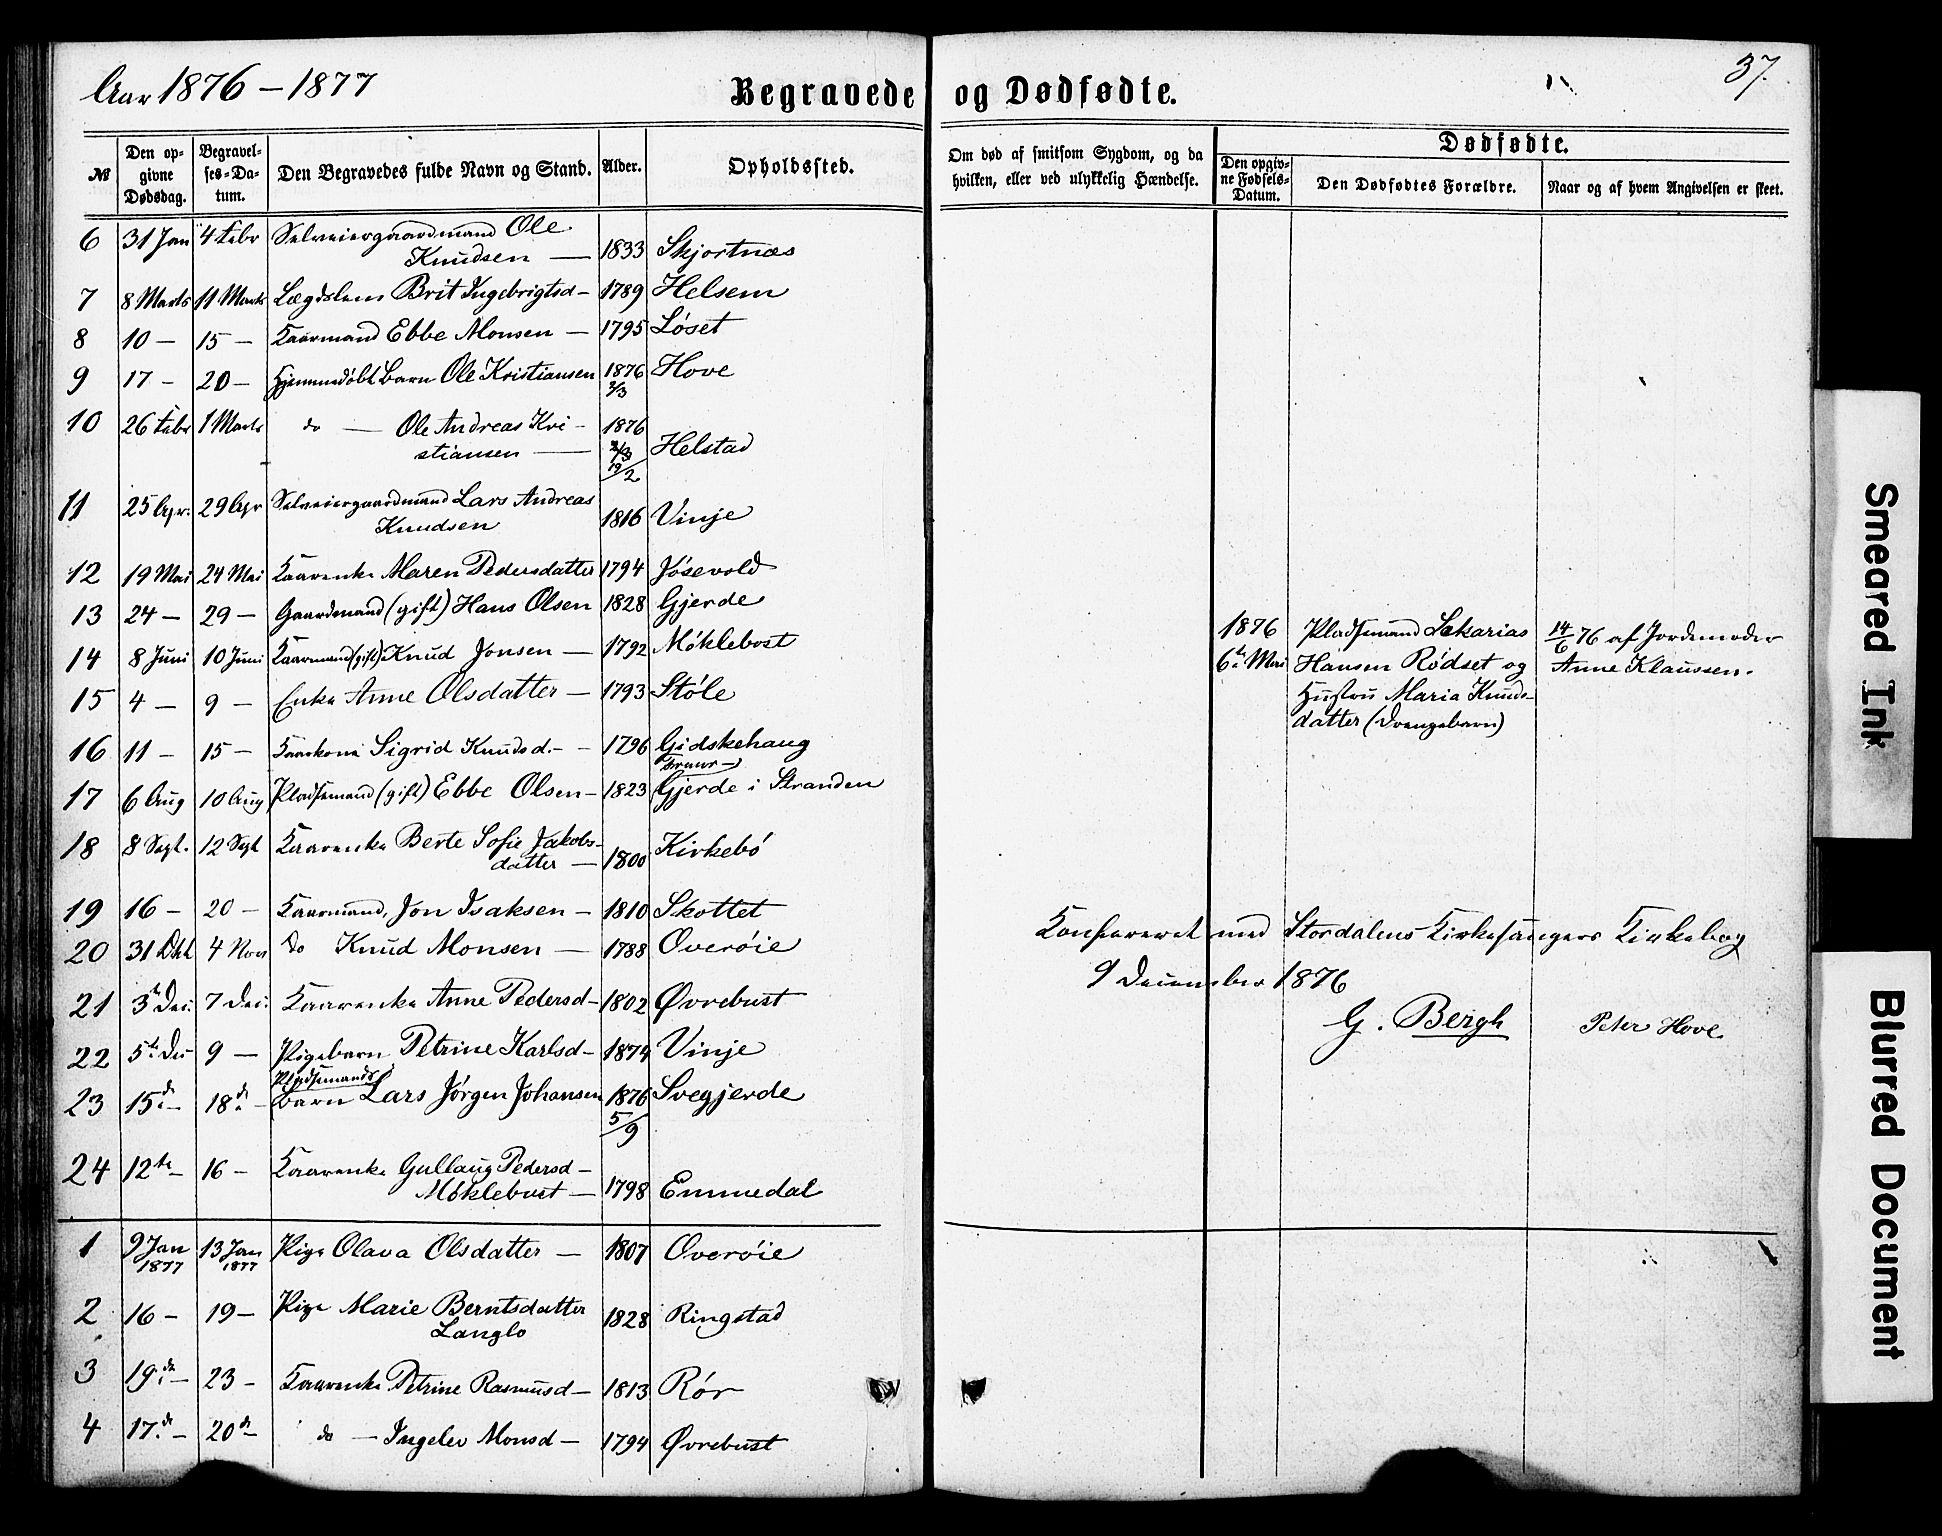 Aar 1876 – 1877
Begravede og Dødfødte.
37.
№
Den opgivne Dødsdag.
Begravelses-Datum.
Den Begravedes fulde Navn og Stand.
Alder.
Opholdssted.
Om død af smitsom Sygdom, og da hvilken, eller ved ulykkelig Hændelse.
Dødfødte.
Den opgivne Fødsels-Datum.
Den Dødfødtes Forældre.
Naar og af hvem Angivelsen er skeet.
6 31 Jan 4 Febr Selveiergaardmand Ole
Knudsen — 1833 Skjortnæs
7 8 Marts 11 Marts Lægdslem Brit Ingebrigtsd – 1789 Helsem
8 10 – 15 – Kaarmand Ebbe Monsen – 1795 Løset
9 17 – 20 – Hjemmedøbt Barn Ole Kristiansen 1876 Hove
2/3
10 26 Febr 1 Marts do — Ole Andreas Kri- 1876
stiansen — Helstad
19/2
11 25 Apr. 29 Apr Selveiergaardmand Lars Andreas
Knudsen 1816 Vinje
12 19 Mai 24 Mai Kaarenke Maren Pedersdatter 1794 Jøsevold
13 24 – 29 – Gaardmand (gift) Hans Olsen 1828 Gjerde
14 8 Juni 10 Juni Kaarmand (gift) Knud Jonsen – 1792 Møklebost
15 4 – 9 – Enke Anne Olsdatter – 1793 Støle
16 11 – 15 – Kaarkone Sigrid Knudsd. – – 1796 Gidskehaug
17 6 Aug 10 Aug Pladsemand (gift) Ebbe Olsen – 1823 Gjerde i Stranden
18 8 Sept. 12 Sept Kaarenke Berte Sofie Jakobs-
datter — 1800 Kirkebø
19 16 – 20 – Kaarmand, Jon Isaksen – 1810 Skottet
20 31 Okt 4 Nov Do Knud Monsen — 1788 Overøie
21 3 Dec. 7 Dec. Kaarenke Anne Pedersd – 1802 Øvrebust
22 5te Dec 9 — Pigebarn Petrine Karlsd – 1874 Vinje
Pladsemands
23 15de – 18de – Barn Lars Jørgen Johansen 1876 Svegjerde
5/9
24 12te – 16 – Kaarenke Gullaug Pedersd –
Møklebust — 1798 Emmedal
1 9 Jan 13 Jan Pige Olava Olsdatter — 1807 Overøie
1877 1877
2 16 – 19 – Pige Marie Berntsdatter 1828 Ringstad
Langlo
3 19de – 23 – Kaarenke Petrine Rasmusd – 1813 Rør
4 17de – 20de – do — Ingelev Monsd – 1794 Øvrebust
1876 Pladsemand Sakarias 14/6 76 af Jordemoder
6te Mai Hansen Rødset og Anne Klaussen.
Hustru Maria Knuds-
datter (Drengebarn)
Konfereret med Stordalens Kirkesangers Kirkebog
9 December 1876
G. Bergh Peter Hove
Smeared Ink
Blurred Document